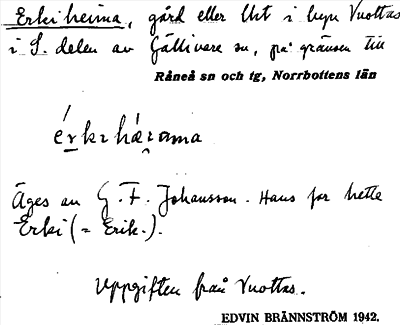 Erkiheima, gård eller hut i byn Vuottas
i S. delen av Gällivare sn, på gränsen till
Råneå sn och tg, Norrbottens län
Äges av G. F. Johansson. Hans far hette
Erki (= Erik.).
Uppgiften från Vuottas.
EDVIN BRÄNNSTRÖM 1942.